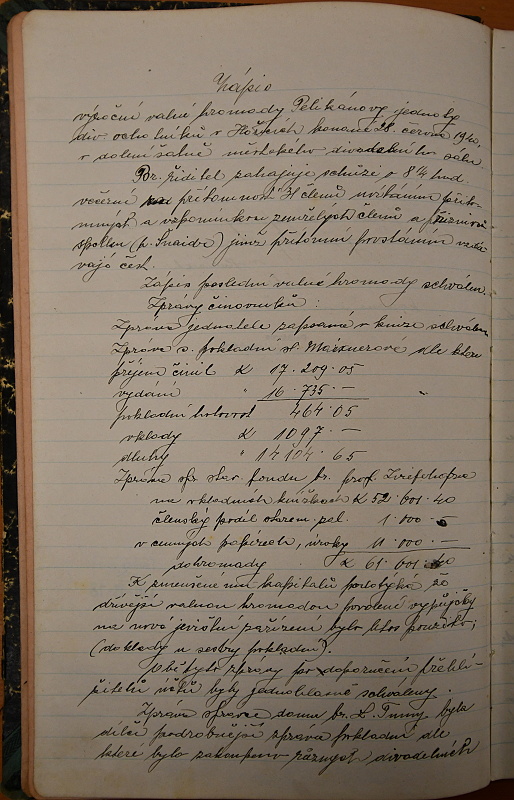 Zápis
výroční valné hromady Pelikánovy jednoty
div. ochotníků v Hořicích konané 28. června 1940.
v dolení šatně městského divadelního sálu
Br. ředitel zahajuje schůzi o 8¼ hod.
večerní za přítomnosti 31 členů uvítáním příto-
mných a vzpomínkou zemřelých členů a příznivců
spolku (p. Šnaidr) jimž přítomní povstáním vzdá-
vají čest.
Zápis poslední valné hromady schválen.
Zprávy činovníků:
Zpráva jednatele zapsaná v knize schválena
Zpráva s. pokladní sl. Maixnerové dle které
příjem činil K 17.209.05
vydání " 16.735.—
pokladní hotovost 464.05
vklady K 1097.—
dluhy " 14104.65
Zpráva spr. stav. fondu br. prof.
na vkladních knížkách K 52.601.40
členský podíl okres. zál. 1.000.—
v cenných papírech, úroky 11.000.—
dohromady K 61.601.40
K zmenšení kapitálu podotýká že
dřívější valnou hromadou povolené vypůjčky
na nové jevištní zařízení bylo letos použito,
(doklady u sestry pokladní).
Obě tyto zprávy po doporučení přehlí-
žitelů účtů byly jednohlasně schváleny.
Zpráva správce domu br. L. Tumy byla
dílčí podrobnější zpráva pokladní dle
které bylo zakoupeno různých divadelních